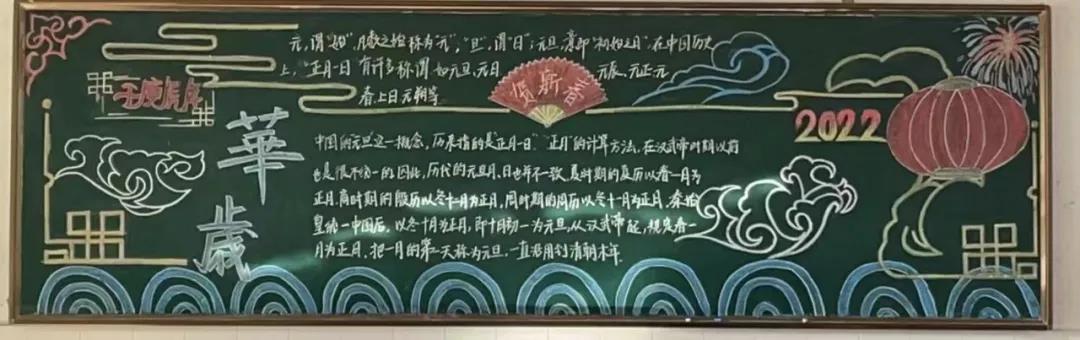 元,谓"始",凡数之始称为"元","旦",谓"日";元旦,意即"初始之日".在中国历史
上,"正月一日"有许多称谓.如元旦、元日、元辰、元正.元
春、上日.元朔等.
贺新春
壬寅虎年
2022
華歲
中国的元旦这一概念,历来指的是"正月一日"."正月"的计算方法,在汉武帝时期以前
也是很不统一的.因此,历代的元旦月、日也并不一致.夏时期的夏历以春一月为
正月.商时期的殷历以冬十二月为正月,周时期的周历以冬十一月为正月.秦始
皇统一中国后,以冬十月为正月,即十月初一为元旦,从汉武帝起,规定春一
月为正月,把一月的第一天称为元旦,一直沿用到清朝末年.